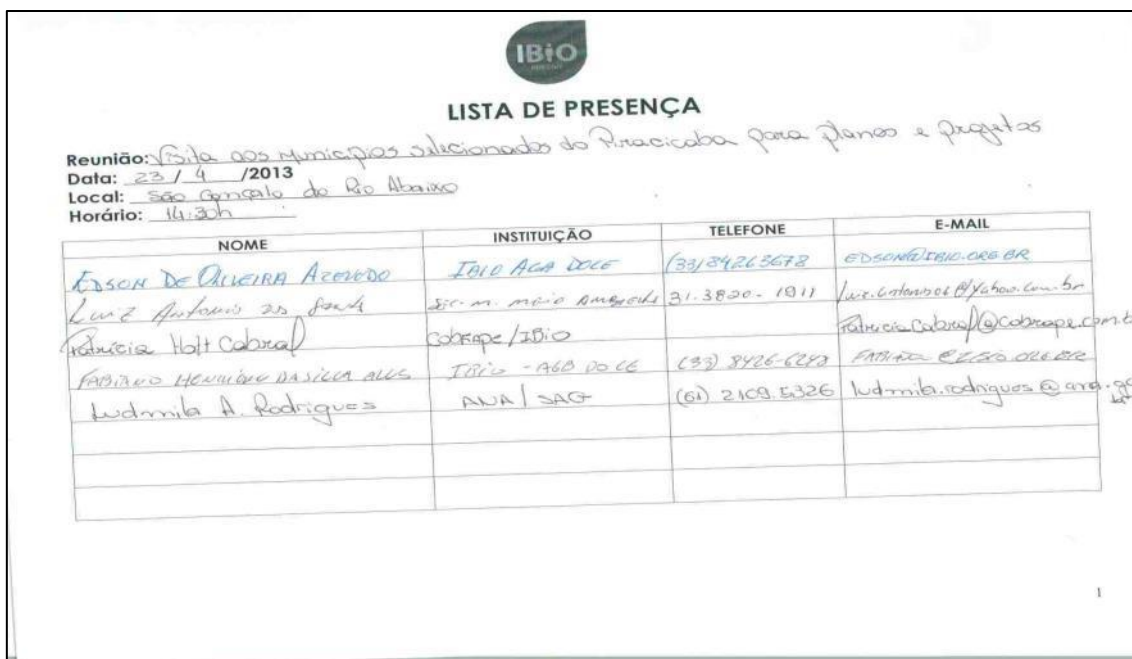 IBiO
LISTA DE PRESENÇA
Reunião: Visita aos Municípios selecionados do Piracicaba para planos e projetos
Data: 23 / 4 /2013
Local: São Gonçalo do Rio Abaixo
Horário: 14:30h
NOME INSTITUIÇÃO TELEFONE E-MAIL
EDSON DE OLIVEIRA AZEVEDO IBIO AGA DOCE (33) 84263678 EDSON@IBIO.ORG.BR
Luiz Antonio Sec. m. meio Ambiente 31.3820-1911 @yahoo.com.br
Patrícia Holt Cabral Cobrape/IBio PatriciaCabral@cobrape.com.b
FABIANO HENRIQUE DA SILVA ALVES IBiO - AGB DOCE (33) 8426-6248
Ludmila A. Rodrigues ANA/SAG (61) 2109.5326 ludmila.rodrigues@ana.go
1